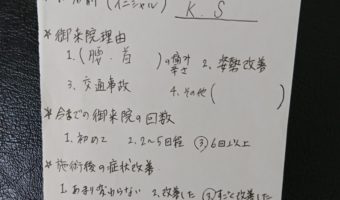 お名前 (イニシャル) K.S
*御来院理由
1.(腰・首)の痛み 辛さ 2. 姿勢改善
3. 交通事故 4. その他( )
*今までの御来院の回数
1. 初めて 2. 2〜5回程 ③ 6回以上
*施術後の症状改善
1. あまり変わらない 2. 改善した ③ すごく改善した